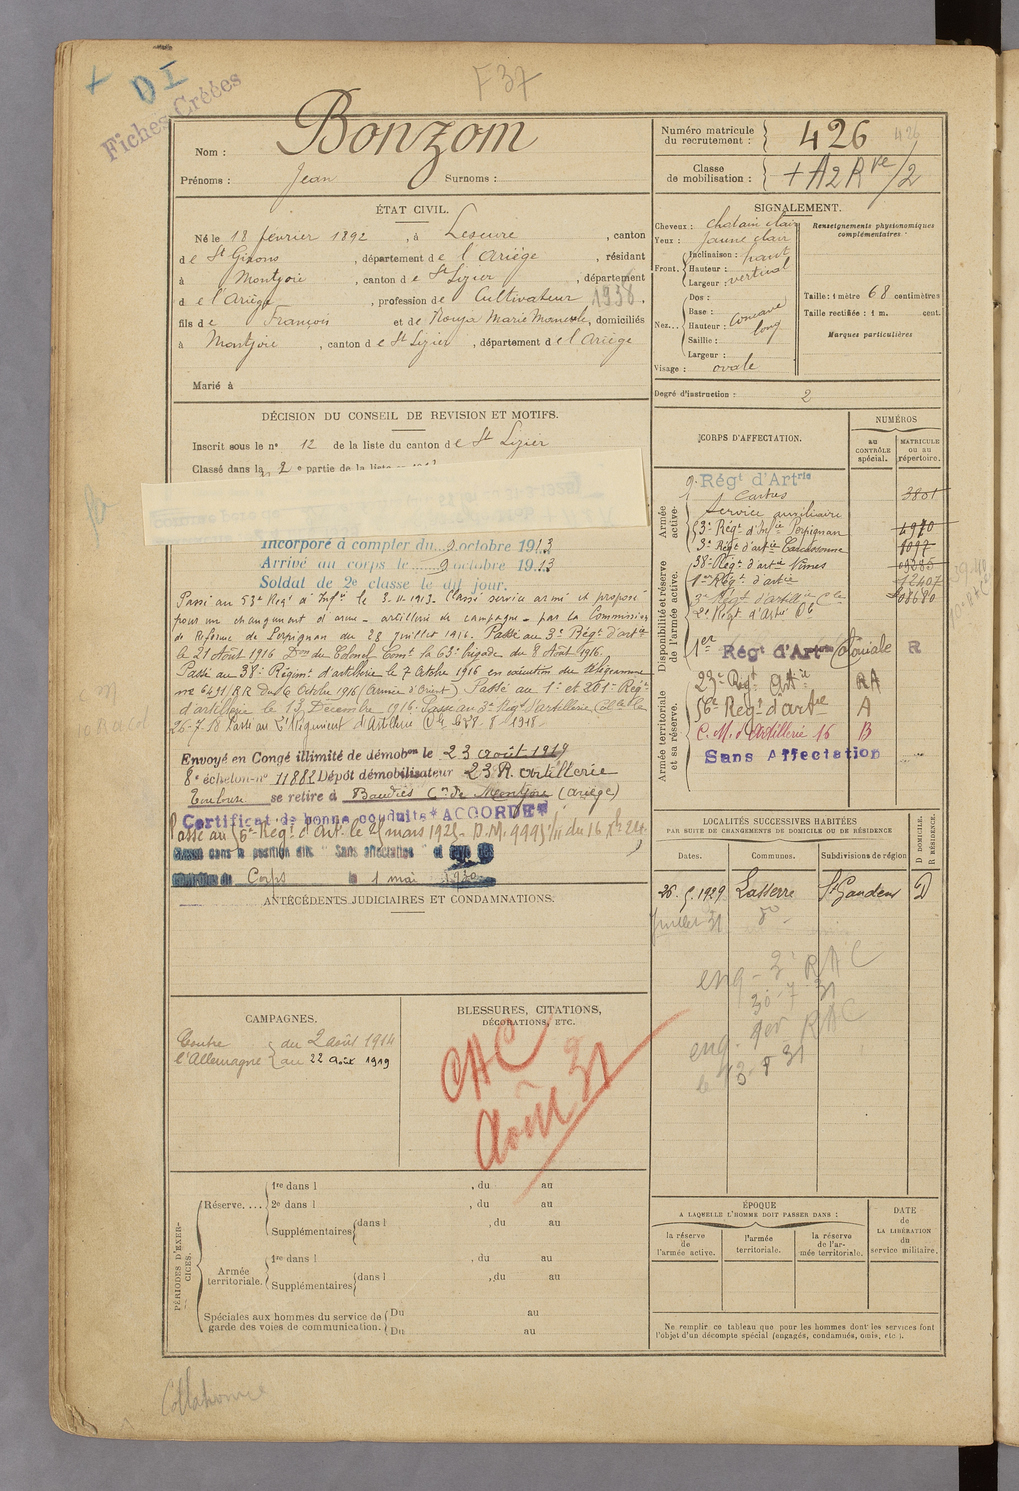 F 37
DI
Fiches Créées
Nom : Bonzom
Prénoms : Jean Surnoms :
Numéro matricule du recrutement : 426 426
Classe de mobilisation : + A2 Rve/2
ÉTAT CIVIL.
Né le 18 février 1892, à Lescure, canton
de St Girons, département de l'Ariège, résidant
à Montjoie, canton de St Lizier, département
de l'Ariège, profession de Cultivateur 1936,
fils de François et de Rouja Marie, domiciliés
à Montjoie, canton de St Lizier, département de l'Ariège
Marié à
SIGNALEMENT.
Cheveux : chatain clair
Yeux : jaune clair
Front. Inclinaison : haut
Hauteur : vertical
Largeur :
Nez... Dos :
Base : concave
Hauteur : long
Saillie :
Largeur :
Visage : ovale
Renseignements physionomiques complémentaires :
Taille : 1 mètre 68 centimètres
Taille rectifiée : 1 m. cent.
Marques particulières
Degré d'instruction : 2
DÉCISION DU CONSEIL DE REVISION ET MOTIFS.
Inscrit sous le no 12 de la liste du canton de St Lizier
Classé dans la 2e partie de la liste
Incorporé à compter du 9 octobre 1913
Arrivé au corps le 9 octobre 1913
Soldat de 2e classe le dit jour.
Passé au 53e Regt d'Infie le 3-11-1913. Classé service armé et proposé
pour un changement d'arme - artillerie de campagne - par la Commission
de Réforme de Perpignan du 28 juillet 1916. Passé au 3e Régt d'artie
le 21 Août 1916 Don du Colonel Comt la 63e brigade du 8 Août 1916.
Passé au 38e Régimt d'artillerie le 7 Octobre 1916 en exécution du télégramme
no 6491/RR Du 6 Octobre 1916 (Armée d'Orient) Passé au 1er et 201e Régt
d'artillerie le 13 Décembre 1916. Passé au 3e Regt d'artillerie Cale le
26-7-18 Passé au 2e Régiment d'Artillerie Cle 8 1918
Envoyé en Congé illimité de démobon le 23 août 1919
8e échelon no 11882 Dépôt démobilisateur 23 R. artillerie
Toulouse se retire à Baudies Cne de Montjoie (Ariège)
Certificat de bonne conduite "ACCORDE"
Passé au 56e Regt d'Art. le 25 mars 1925 - D.M. 9995/11 du 16 Xbre 24.
Classé dans la position dite "Sans affectation"
Corps le 1 mai 1930
CORPS D'AFFECTATION.
NUMÉROS
au CONTRÔLE spécial.
MATRICULE ou au répertoire.
Armée active.
9e Régt d'Artrie
à Castres 3801
Service auxiliaire
53e Régt d'Infie Perpignan 4970
Disponibilité et réserve de l'armée active.
3e Régt d'artie Carcassonne 1097
38e Régt d'artie Nimes 09285
1er Régt d'artie 12407
3e Regt d'artillerie Cle 08680
2e Regt d'Artie Cle
1er Régt d'Artrie Coloniale R
Armée territoriale et sa réserve.
23e Regt Artie RA
56e Regt d'artie A
C. M. d'Artillerie 16 B
Sans Affectation
LOCALITÉS SUCCESSIVES HABITÉES
PAR SUITE DE CHANGEMENTS DE DOMICILE OU DE RÉSIDENCE
D DOMICILE. R RÉSIDENCE.
Dates. Communes. Subdivisions de région
26. 5. 1929 Lasserre St Gaudens D
Juillet 31 do
enq - 3e RAC
30-7-31
enq. 1er RAC
le 13-8 31
ANTÉCÉDENTS JUDICIAIRES ET CONDAMNATIONS.
CAMPAGNES.
Contre l'Allemagne
du 2 août 1914
au 22 Août 1919
BLESSURES, CITATIONS, DÉCORATIONS, ETC.
CAC
Août 31
PÉRIODES D'EXERCICES.
Réserve.... 1re dans l , du au
2e dans l , du au
Supplémentaires dans l , du au
Armée territoriale. 1re dans l , du au
Supplémentaires dans l , du au
Spéciales aux hommes du service de garde des voies de communication. Du au
Du au
ÉPOQUE
A LAQUELLE L'HOMME DOIT PASSER DANS :
la réserve de l'armée active.
l'armée territoriale.
la réserve de l'armée territoriale.
DATE de LA LIBÉRATION du service militaire.
Ne remplir ce tableau que pour les hommes dont les services font
l'objet d'un décompte spécial (engagés, condamnés, omis, etc.).